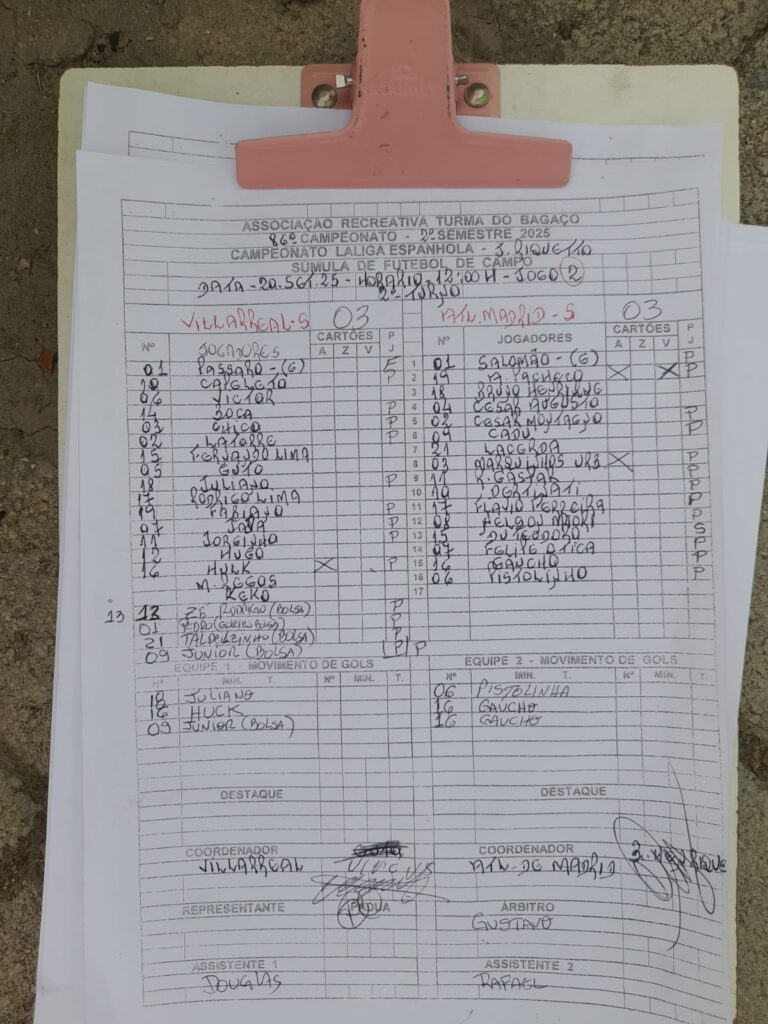 ASSOCIAÇÃO RECREATIVA TURMA DO BAGAÇO
86º CAMPEONATO - 2º SEMESTRE 2025
CAMPEONATO LALIGA ESPANHOLA - J. RIQUETTO
SÚMULA DE FUTEBOL DE CAMPO
DATA - 20.SET.25 - HORARIO 12:00H - JOGO 2
2º TURNO
VILLARREAL-S 03 ATL. MADRID - S 03
Nº JOGADORES CARTÕES A Z V P J Nº JOGADORES CARTÕES A Z V P J
01 PASSARO - (G) F 1 01 SALOMÃO - (G) P
20 CAPELETO P 2 19 A. PACHECO X X P
06 VICTOR 3 18 BRUNO HENRIQUE
14 DOCA P 4 04 CESAR AUGUSTO P
03 CHICO P 5 02 CESAR MONTAGNO P
02 LATORRE P 6 09 CADU
15 FERNANDO LIMA 7 21 LACERDA
05 GUTO 8 03 MARQUINHOS URB X P
18 JULIANO P 9 11 R. GASPAR P
17 RODRIGO LIMA 10 10 DERTINATI P
19 FABIANO P 11 17 FLAVIO FERREIRA P
07 JAVA P 12 08 NELSON MADRI P
11 JORGINHO P 13 15 DU TEODORO S
12 HUGO 14 07 FELIPE OTICA P
16 HULK X P 15 16 GAUCHO P
M. REGOS 16 06 PISTOLINHO P
KEKO 17
13 ZÉ RODRIGO (BOLSA) P
01 PEDRO (GOLEIRO BOLSA) P
21 TALDELZINHO (BOLSA) P
09 JUNIOR (BOLSA) P P
EQUIPE 1 - MOVIMENTO DE GOLS EQUIPE 2 - MOVIMENTO DE GOLS
Nº MIN. T. Nº MIN. T. Nº MIN. T. Nº MIN. T.
18 JULIANO 06 PISTOLINHA
16 HUCK 16 GAUCHO
09 JUNIOR (BOLSA) 16 GAUCHO
DESTAQUE DESTAQUE
COORDENADOR COORDENADOR
VILLARREAL ATL. DE MADRID
REPRESENTANTE PADUA ÁRBITRO
GUSTAVO
ASSISTENTE 1 ASSISTENTE 2
DOUGLAS RAFAEL